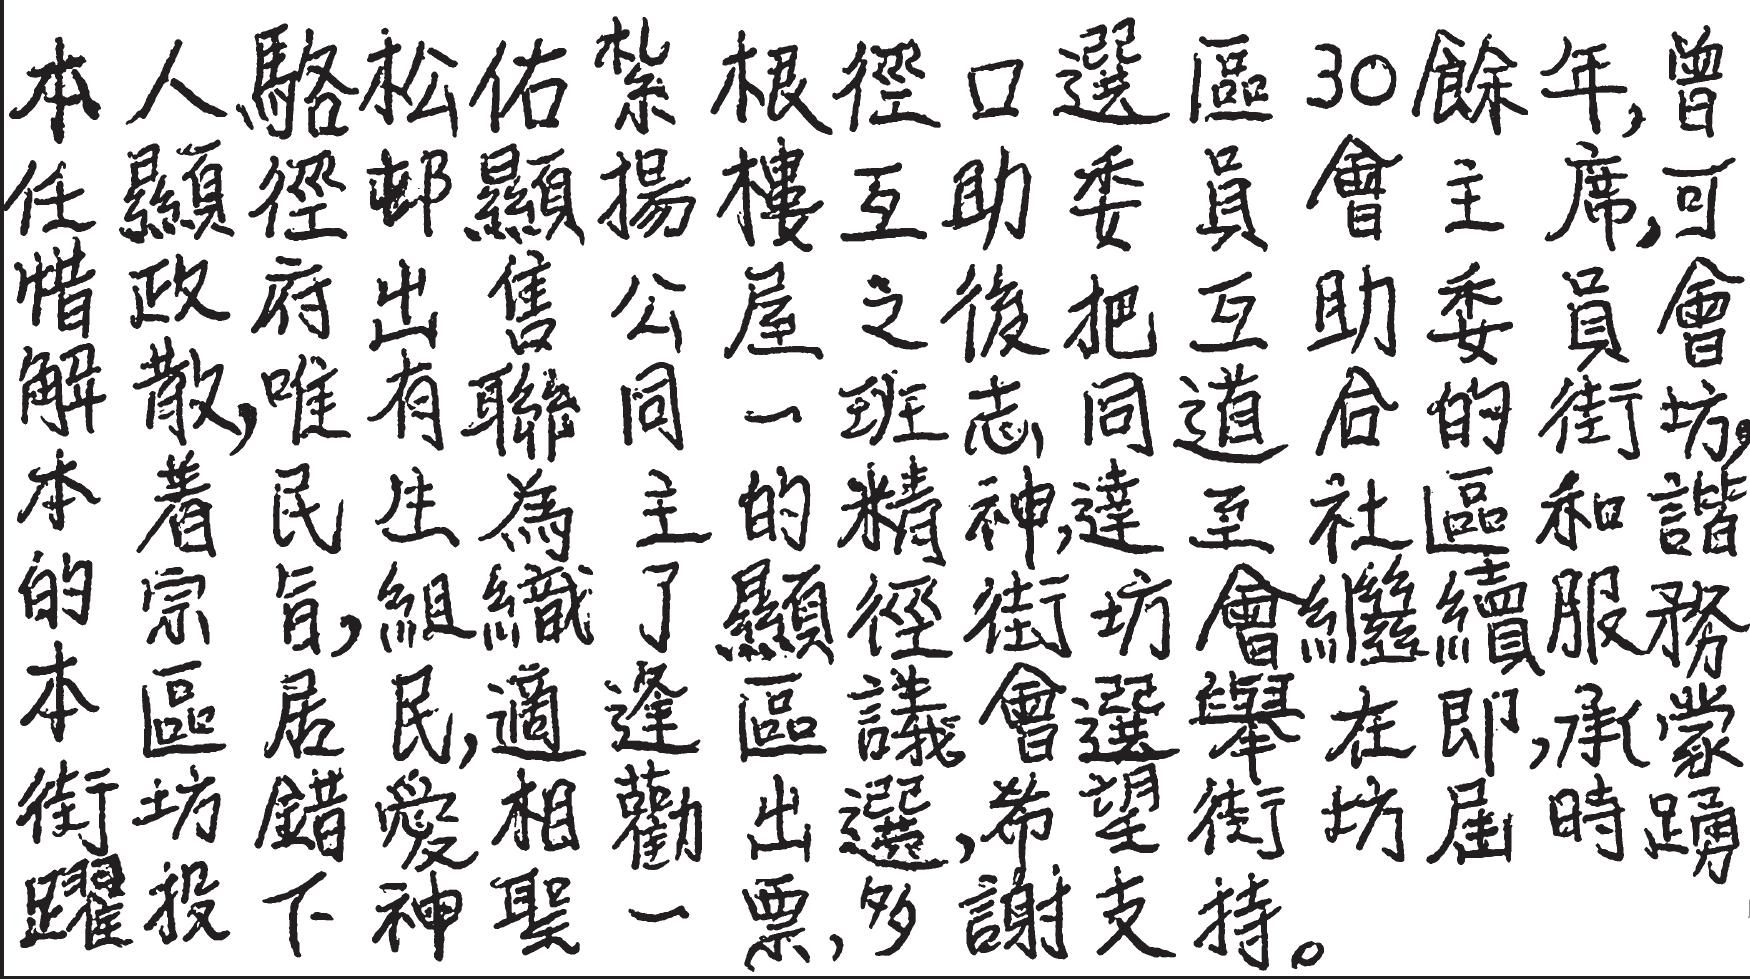 本人駱松佑紮根徑口選區30餘年,曾
任顯徑邨顯揚樓互助委員會主席,可
惜政府出售公屋之後把互助委員會
解散,唯有聯同一班志同道合的街坊,
本着民生為主的精神,達至社區和諧
的宗旨,組織了顯徑街坊會繼續服務
本區居民,適逢區議會選舉在即,承蒙
街坊錯愛相勸出選,希望街坊屆時踴
躍投下神聖一票,多謝支持。